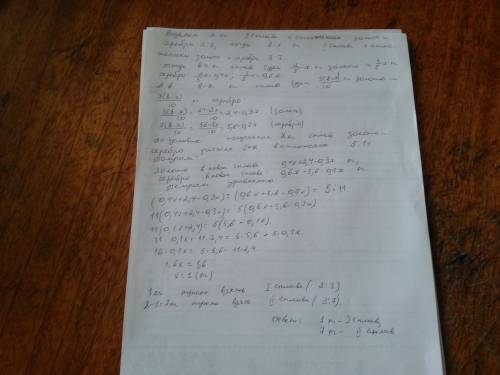 Возьмем x кг I сплава с отношением золота и
серебра 2:3, тогда 8-x кг II сплава с отно-
шением золота и серебра 3:7
тогда в x кг сплава x кг золота и x кг
серебра
В 8-x кг сплава 3(8-x)/10 кг золота и
7(8-x)/10 кг серебра
3(8-x)/10 = 24-3x/10 = 2,4-0,3x (золото)
7(8-x)/10 = 56-7x/10 = 5,6-0,7x (серебро)
По условию 8 кг сплава золота и
серебра должны быть в отношении 5:11
золота в новом сплаве 0,4x+2,4-0,3x кг,
серебра в новом сплаве 0,6x+5,6-0,7x кг
уравнение
(0,4x+2,4-0,3x):(0,6x+5,6-0,7x) = 5:11
11(0,4x+2,4-0,3x) = 5(0,6x+5,6-0,7x)
11(0,1x+2,4) = 5(5,6-0,1x)
11·0,1x+11·2,4 = 5·5,6-5·0,1x
16·0,1x = 5·5,6-11·2,4
1,6x = 1,6
x = 1 (кг)
1 кг нужно взять I сплава (2:3)
8-1=7 кг нужно взять II сплава (3:7)
Ответ: 1 кг - I сплав,
7 кг - II сплав